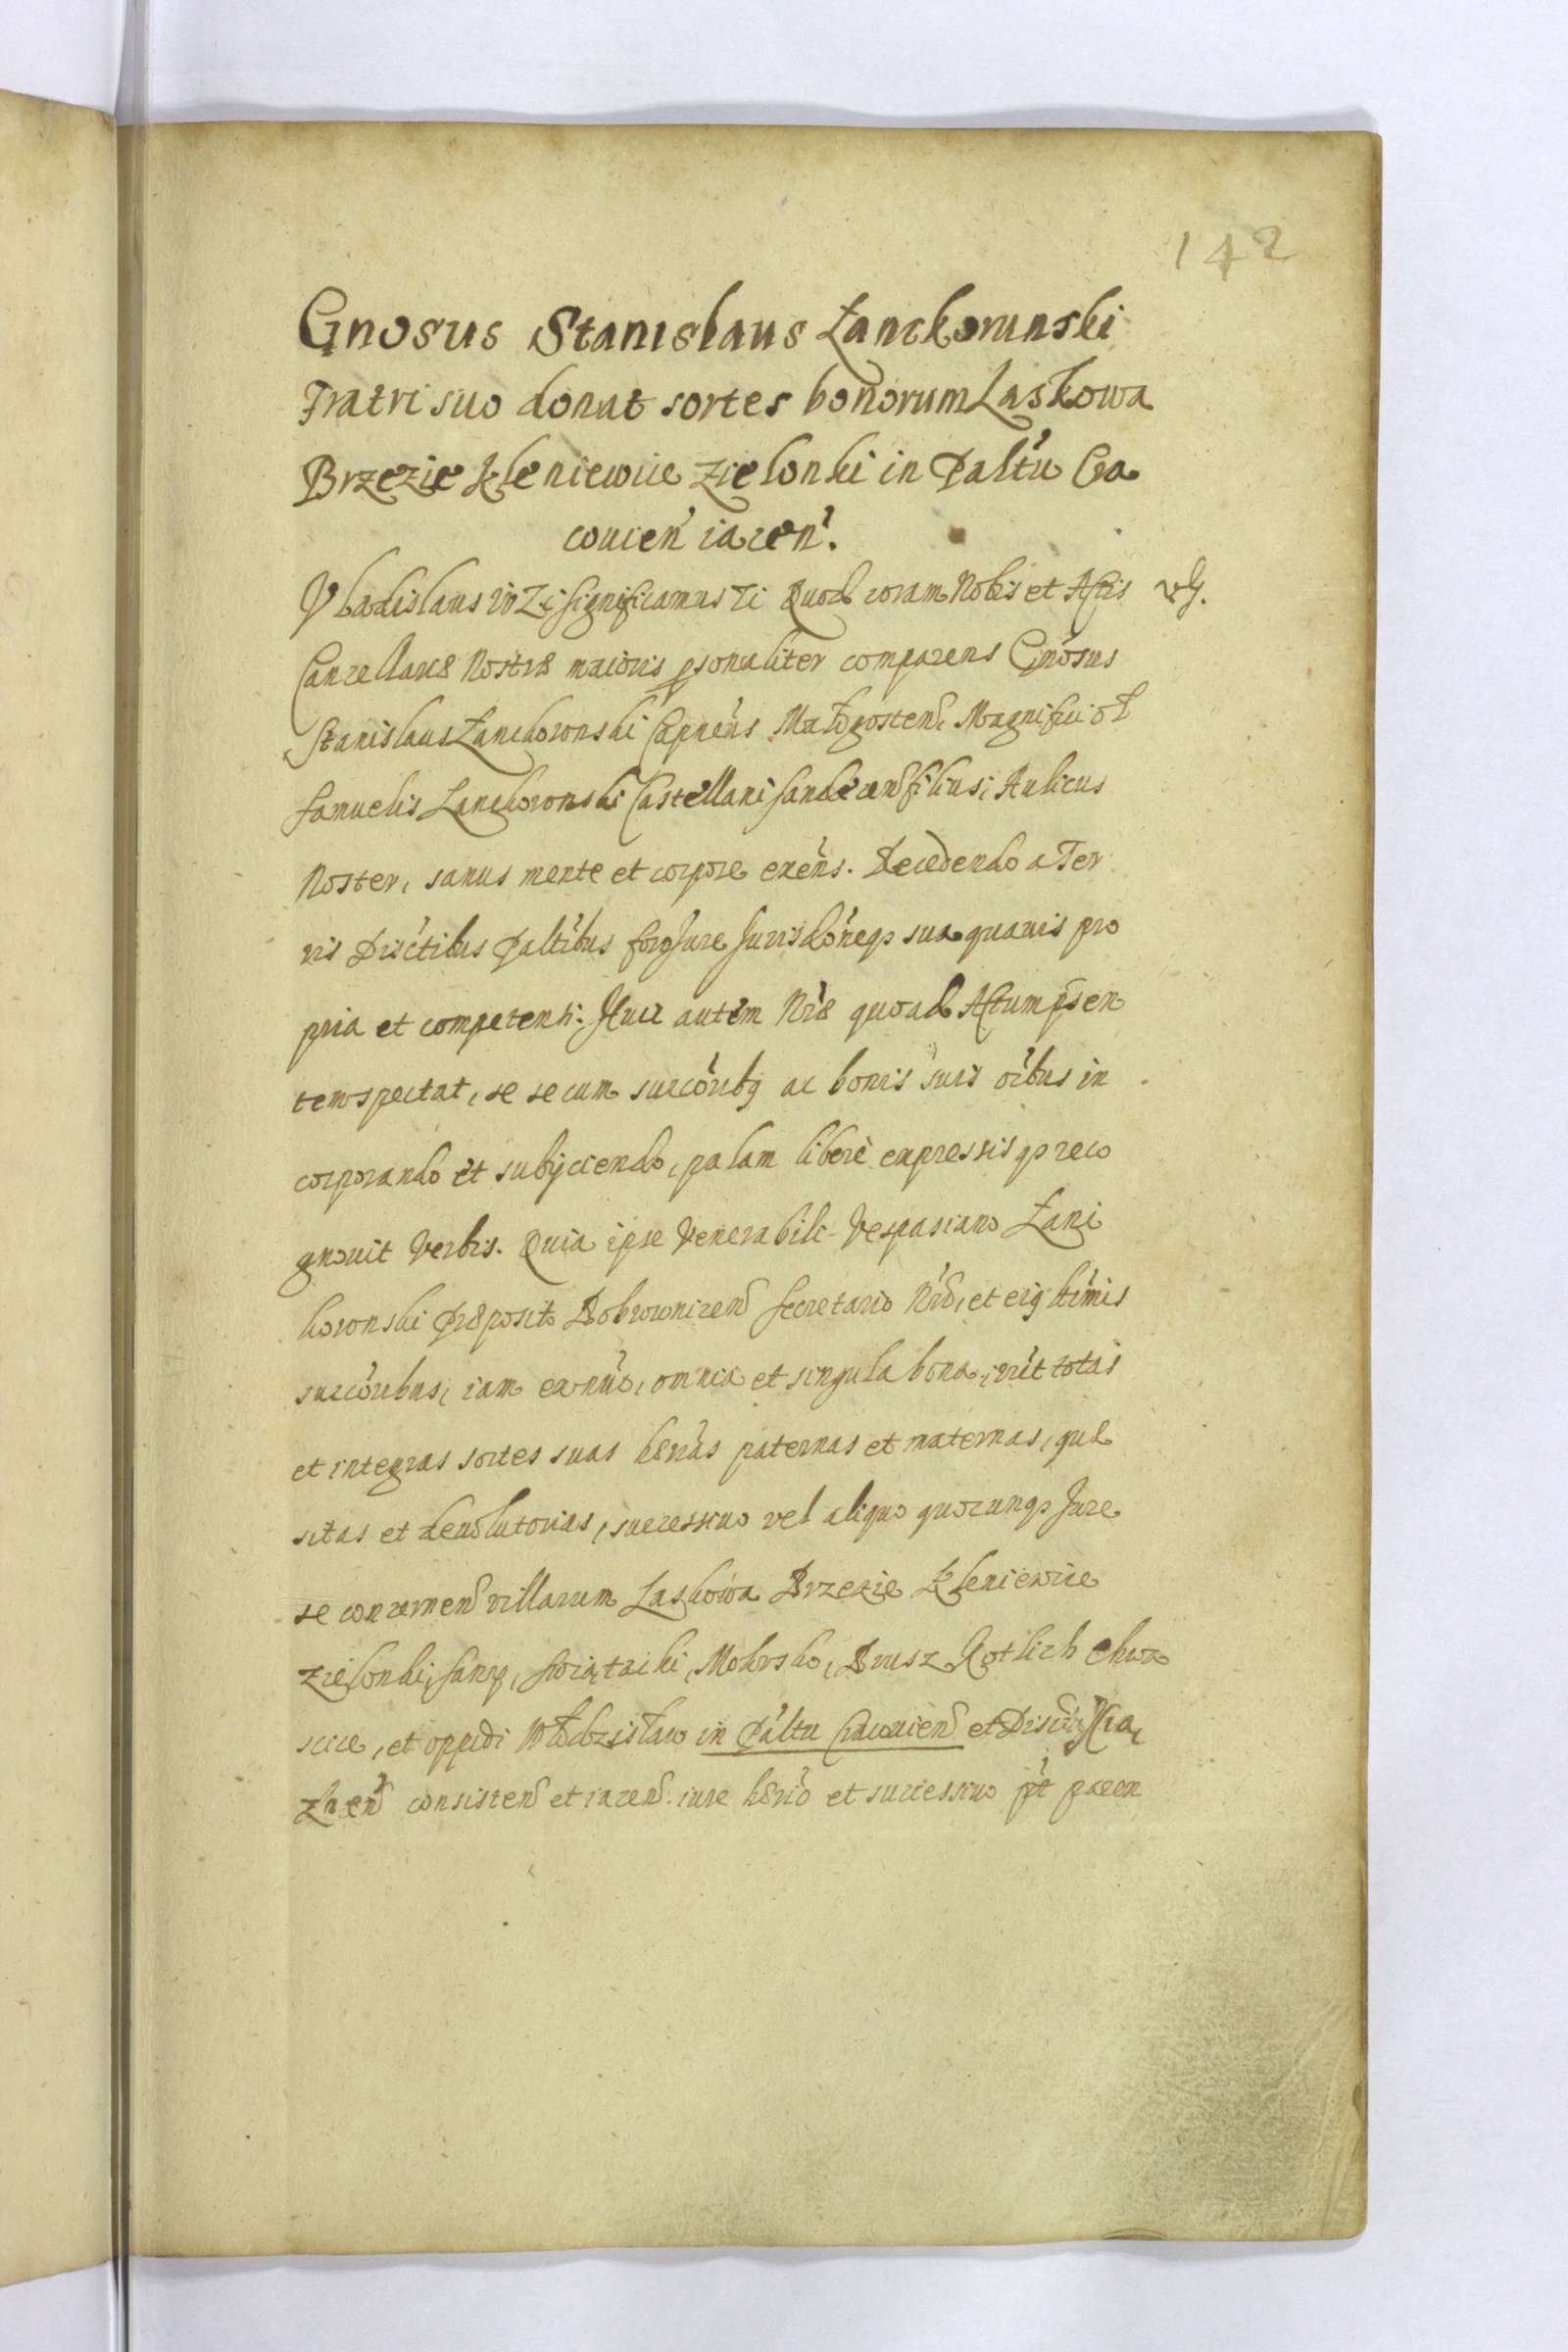 142
Gnosus Stanislaus Łanckorunski
Fratri suo donat sortes bonorum Laskowa
Brzezie Kleniewice Zielonki in Paltu Cra
couien iacen.
Vladislaus significamus Quod coram Nobis et Actis
Cancellariæ Nostræ maioris psonaliter comparens Gnosus
Stanislaus Łanckoronski Capneus Małogosten, Magnifici ol
Samuelis Lanckoronski Castellani filius, Aulicus
Noster, sanus mente et corpore exens. Recedendo a Ter
ris Disctibus Paltibus foro Jure Jurisdoneqz sua quauis pro
pria et competenti. Huic autem Nræ quoad Actum psen
tem spectat, se se cum succoribq ac bonis suis oibus in
corporando et subijciendo, palam liberè expressisqz reco
gnouit Verbis. Quia ipse Venerabili Vespasiano Łanc
koronski Præposito Dobrownicen Secretario Nro, et eiq ltimis
succoribus, iam ex nūc, omnia et singula bona, totas
et integras sortes suas hærias paternas et maternas, qul
sitas et deuolutorias, successiuo vel aliquo quocunqz Jure
se concernen villarum Laskowa Brzezie Kleniewice
Zielonki, Mokrsko,
scice, et oppidi Włodzisław in Paltu Cracouien et
consisten et iacen. iure hærio et successiuo pt paren